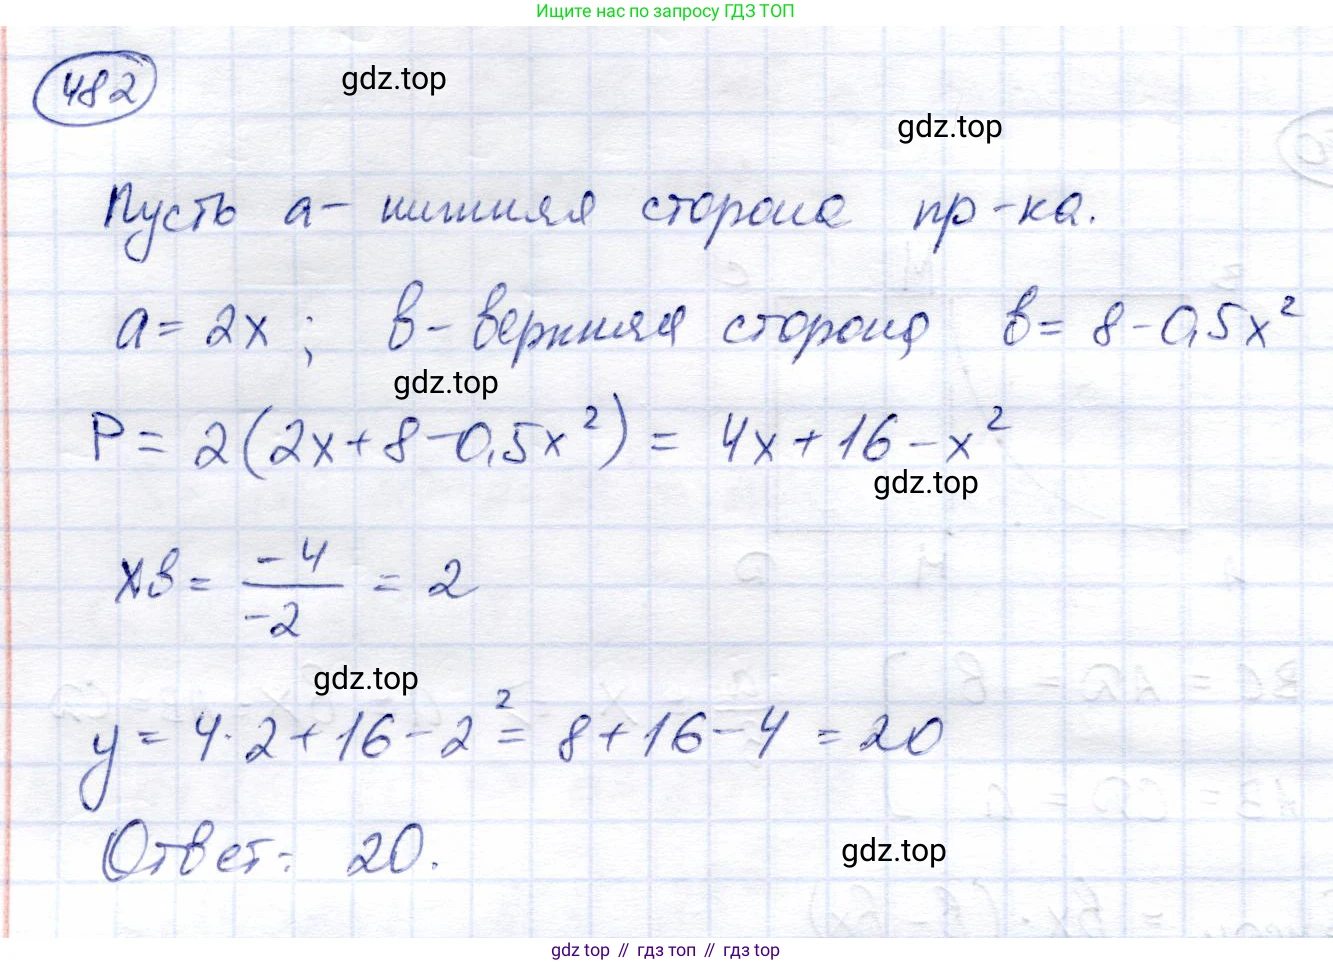 Ищите нас по запросу ГДЗ ТОП
482
gdz.top
gdz.top
Пусть а - нижняя сторона пр-ка.
a = 2x ; в - верхняя сторона, в = 8 - 0,5x²
gdz.top
P = 2(2x + 8 - 0,5x²) = 4x + 16 - x²
gdz.top
xв = -4/-2 = 2
gdz.top
y = 4·2 + 16 - 2² = 8 + 16 - 4 = 20
Ответ: 20.
gdz.top
gdz top // гдз топ // гдз top